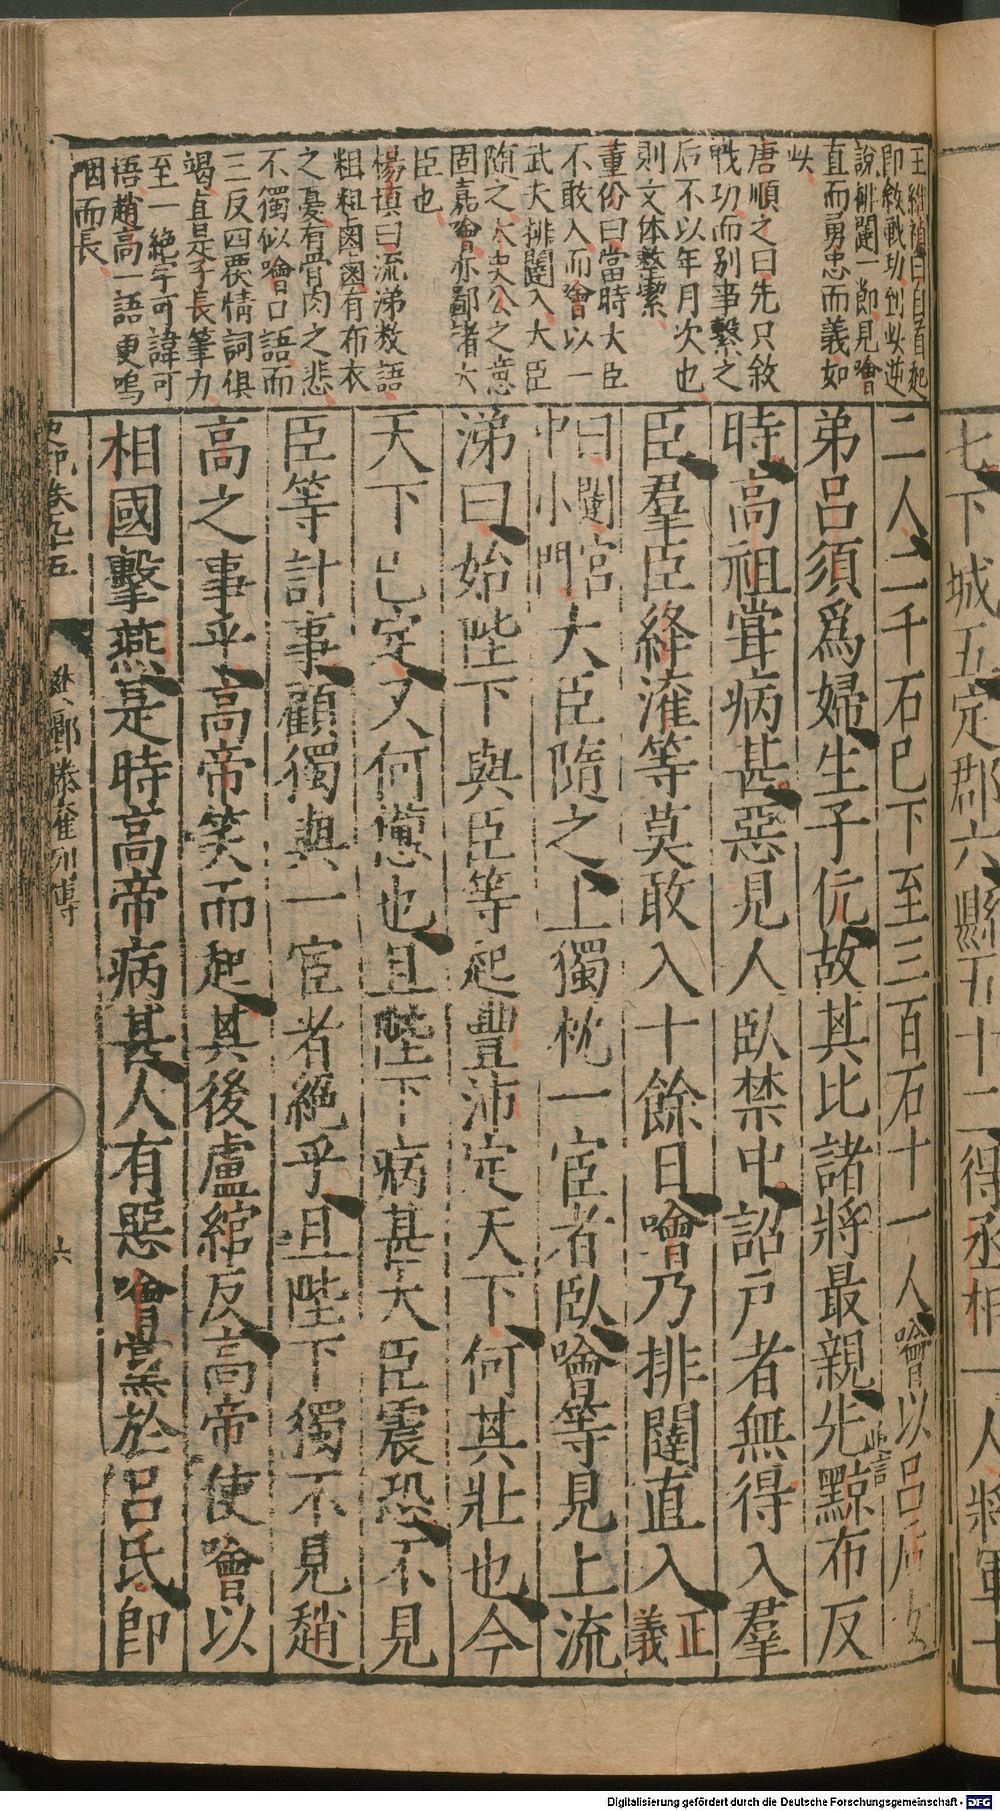 王維楨曰自首起
即敘戰功到此逆
說排闥一節見噲
直而勇忠而義如
此
唐順之曰先只敘
戰功而別事繫之
后不以年月次也
則文体整繫
董份曰當時大臣
不敢入而噲以一
武夫排闥入大臣
隨之太史公之意
固嘉噲亦鄙諸大
臣也
楊慎曰流涕数語
粗粗鹵鹵有布衣
之憂有骨肉之悲
不獨似噲口語而
三反四覆情詞俱
竭直是子長筆力
至一絶字可諱可
悟趙高一語更嗚
咽而長
二人二千石巳下至三百石十一人噲以吕后女
弟吕須爲婦生子伉故其比諸將最親先黥布反
時高祖嘗病甚惡見人臥禁中詔戸者無得入羣
臣羣臣絳灌等莫敢入十餘日噲乃排闥直入正義
曰闥宮中小門大臣隨之上獨枕一宦者臥噲等見上流
涕曰始陛下與臣等起豐沛定天下何其壯也今
天下已定又何憊也且陛下病甚大臣震恐不見
臣等計事顧獨與一宦者絶乎且陛下獨不見趙
高之事乎高帝笑而起其後盧綰反高帝使噲以
相國擊燕是時高帝病甚人有惡噲黨於吕氏即
史記卷九十五 樊酈滕灌列傳 六
七下城五定郡六縣五十二得丞相一人將軍十
Digitalisierung gefördert durch die Deutsche Forschungsgemeinschaft - DFG